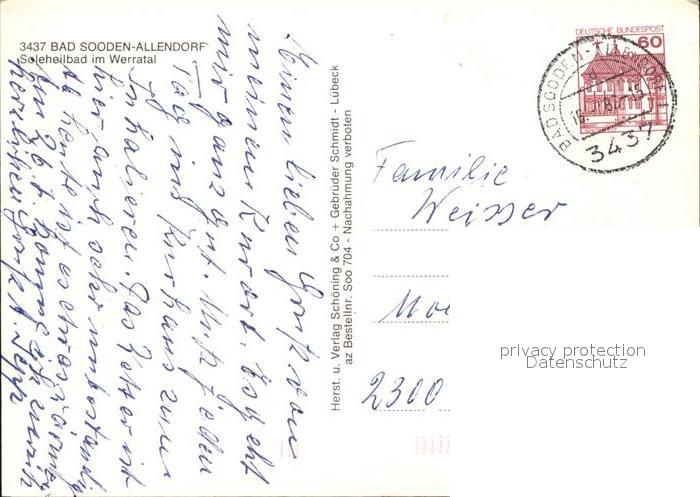 3437 BAD SOODEN-ALLENDORF
Soleheilbad im Werratal
Einen lieben Gruß von
meinem Kurort. Es geht
mir ganz gut. Muß jeden
Tag ins Kurhaus zum
Inhalieren. Das Wetter ist
hier auch sehr unbeständig
Ab heute ist es etwas wärmer
Am 26. komme ich zurück
herzliche Grüße
Herst. u. Verlag Schöning & Co + Gebrüder Schmidt - Lübeck
az Bestellnr. Soo 704 - Nachahmung verboten
DEUTSCHE BUNDESPOST
60
BAD SOODEN-ALLENDORF 1
3437
Familie
Weisser
2300
privacy protection
Datenschutz